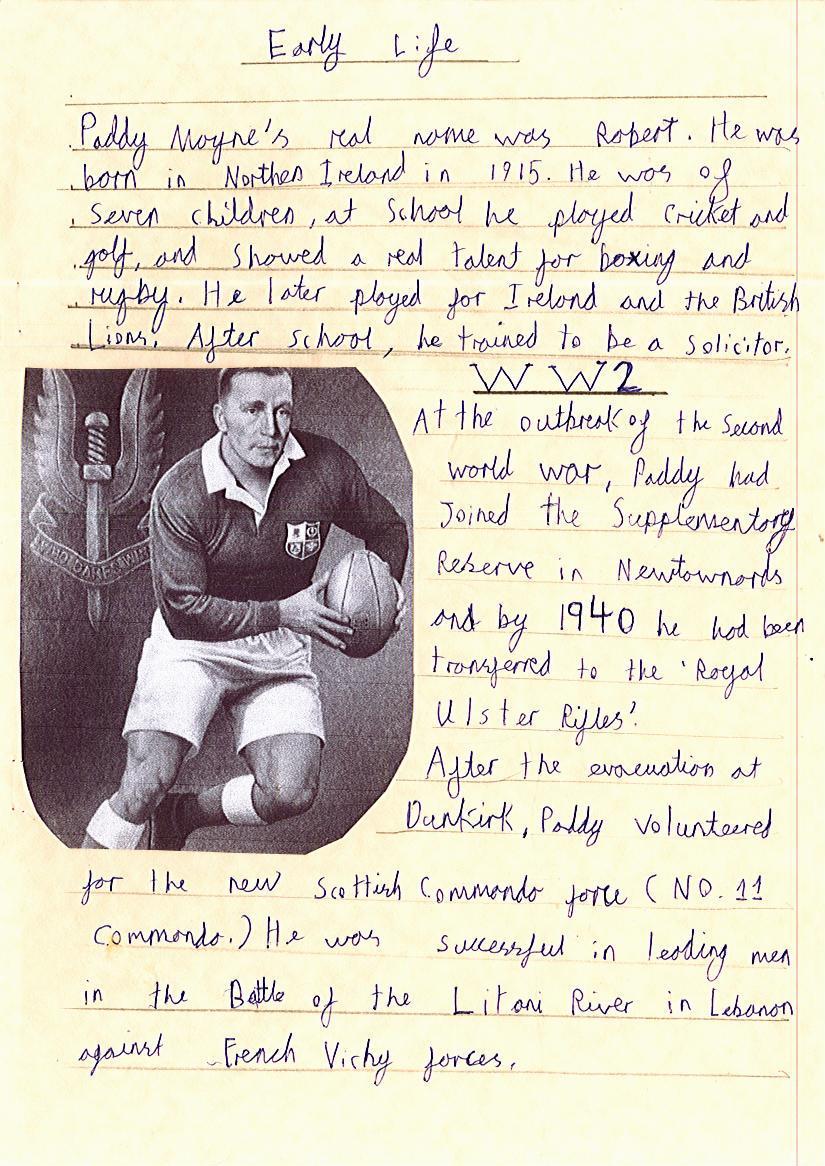 Early Life
Paddy Mayne's real name was Robert. He was
born in Northen Ireland in 1915. He was of
seven children, at school he played cricket and
golf, and showed a real talent for boxing and
rugby. He later played for Ireland and the British
Lions. After school, he trained to be a solicitor.
WW2
At the outbreak of the second
world war, Paddy had
Joined the Supplementary
Reserve in Newtownards
and by 1940 he had been
transferred to the 'Royal
Ulster Rifles'.
After the evacuation at
Dunkirk, Paddy volunteered
for the new Scottish Commando force (NO. 11
Commando.) He was successful in leading men
in the Battle of the Litani River in Lebanon
against French Vichy forces.
WHO DARES WINS